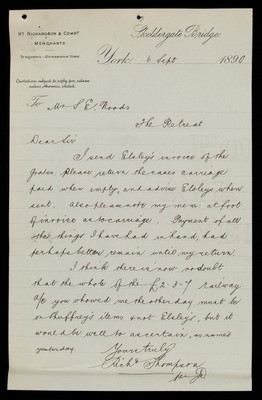 Hy. Richardson & Compy.
Merchants.
Skeldergate Bridge
York. 6 Sept 1890
Quotations subject to reply per return
unless otherwise stated.
To Mr S. E. Woods
The Retreat
Dear Sir
I send Elsley's invoice of the
grates. Please return the cases carriage
paid when empty, and advise Elsleys when
sent. Also please note my mem. at foot
of invoice as to carriage. Payment of all
the things I have had in hand, had
perhaps better remain until my return.
I think there is now no doubt
that the whole of the £2-3-7 railway
a/c you showed me the other day must be
on Puffrey's items & not Elsley's, but it
would be well to ascertain, as named
yesterday.
Yours truly
Richd Thompson
per